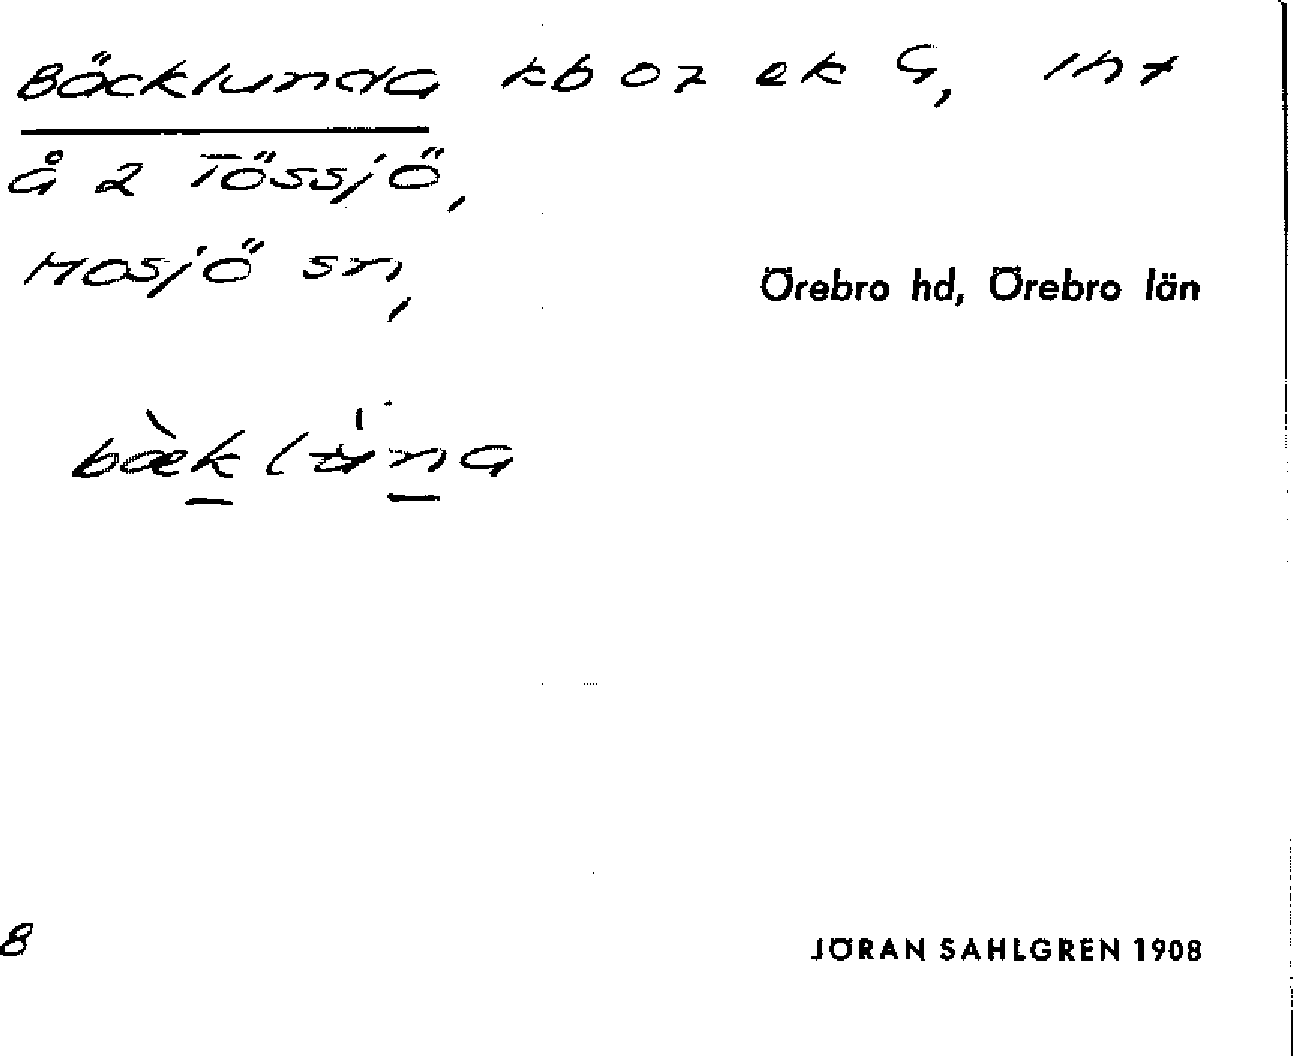 Böcklunda kb oz ek G, lht
å 2 Tössjö,
Mosjö sn,
Örebro hd, Örebro län
bæ̀klŭna
8
JÖRAN SAHLGREN 1908